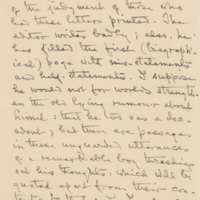 of the judgment of those who
had these letters printed. The
editor writes badly; also, he
has filled the first (biograph-
ical) page with mis-statements
and half-statements. I suppose
he would not for worlds strength-
en the old lying rumour about
himself: that he was a dec-
adent; but there are passages
in these unguarded utterances
of a remarkable boy thrashing
out his thoughts, which will be
quoted apart from their con-